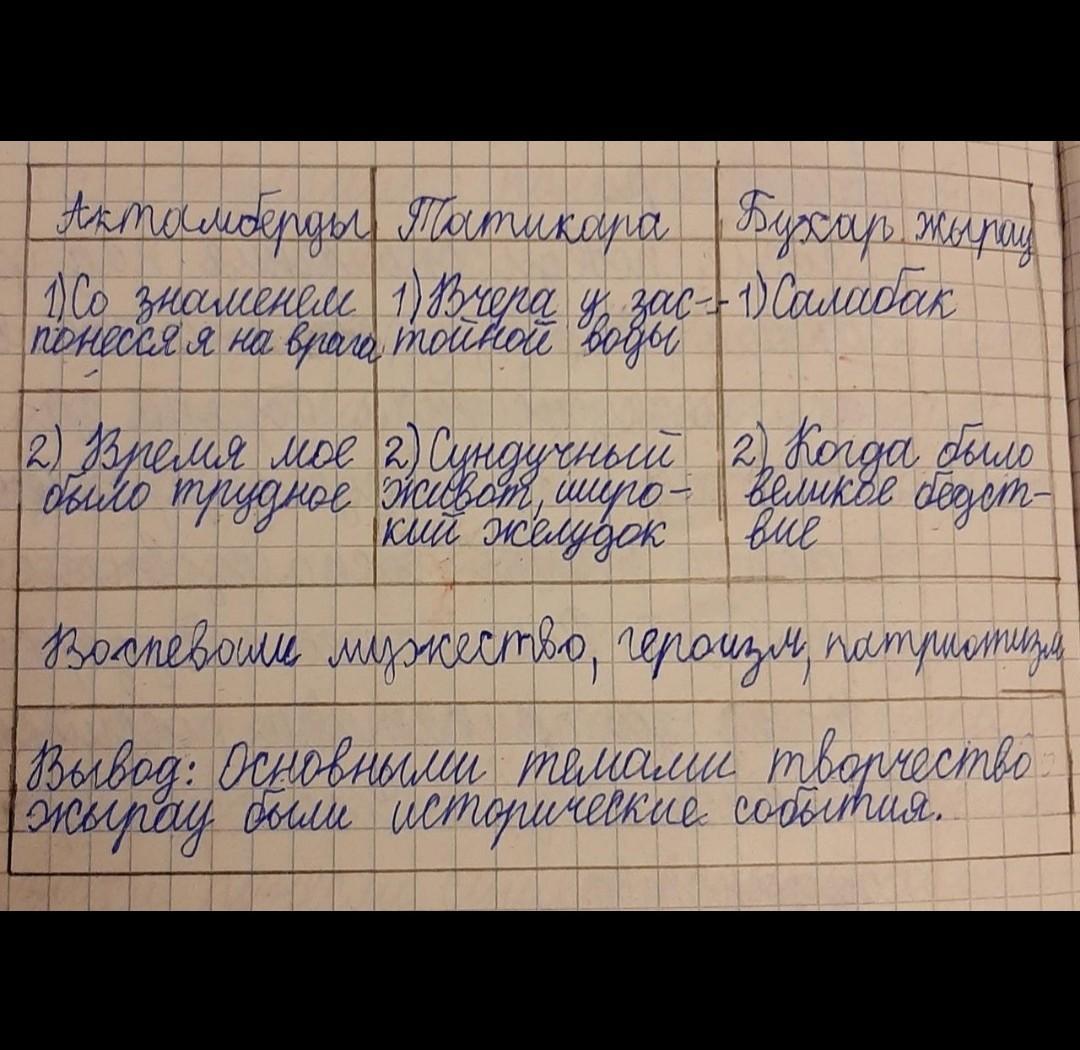 Актамберды Татикара Бухар жырау
1) Со знаменем
понесся я на врага
1) Вчера у зас-
тойной воды
1) Салабак
2) Время мое
было трудное
2) Сундучный
живот, широ-
кий желудок
2) Когда было
великое бедст-
вие
Воспевали мужество, героизм, патриотизм
Вывод: Основными темами творчество
жырау были исторические события.